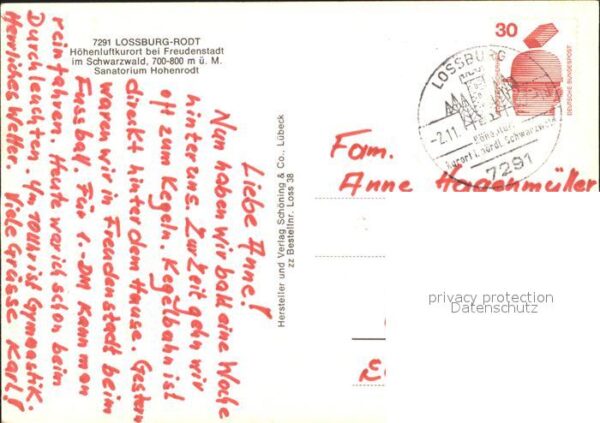 7291 LOSSBURG-RODT
Höhenluftkurort bei Freudenstadt
im Schwarzwald, 700-800 m ü. M.
Sanatorium Hohenrodt
Liebe Anne!
Nun haben wir bald eine Woche
hinter uns. Zur Zeit gehn wir
oft zum Kegeln. Kegelbahn ist
direkt hinter dem Hause. Gestern
waren wir in Freudenstadt beim
Fussball. Für 1.-DM kann man
rein fahren. Heute war ich schon beim
Durchleuchten 1/4 10 Uhr ist Gymnastik.
Herrliches Wetter. Viele Grüsse Karl!
Hersteller und Verlag Schöning & Co., Lübeck
zz Bestellnr. Loss 38
30
DEUTSCHE BUNDESPOST
LOSSBURG
-2.11.
7291
Fam.
Anne Haschmüller
privacy protection
Datenschutz